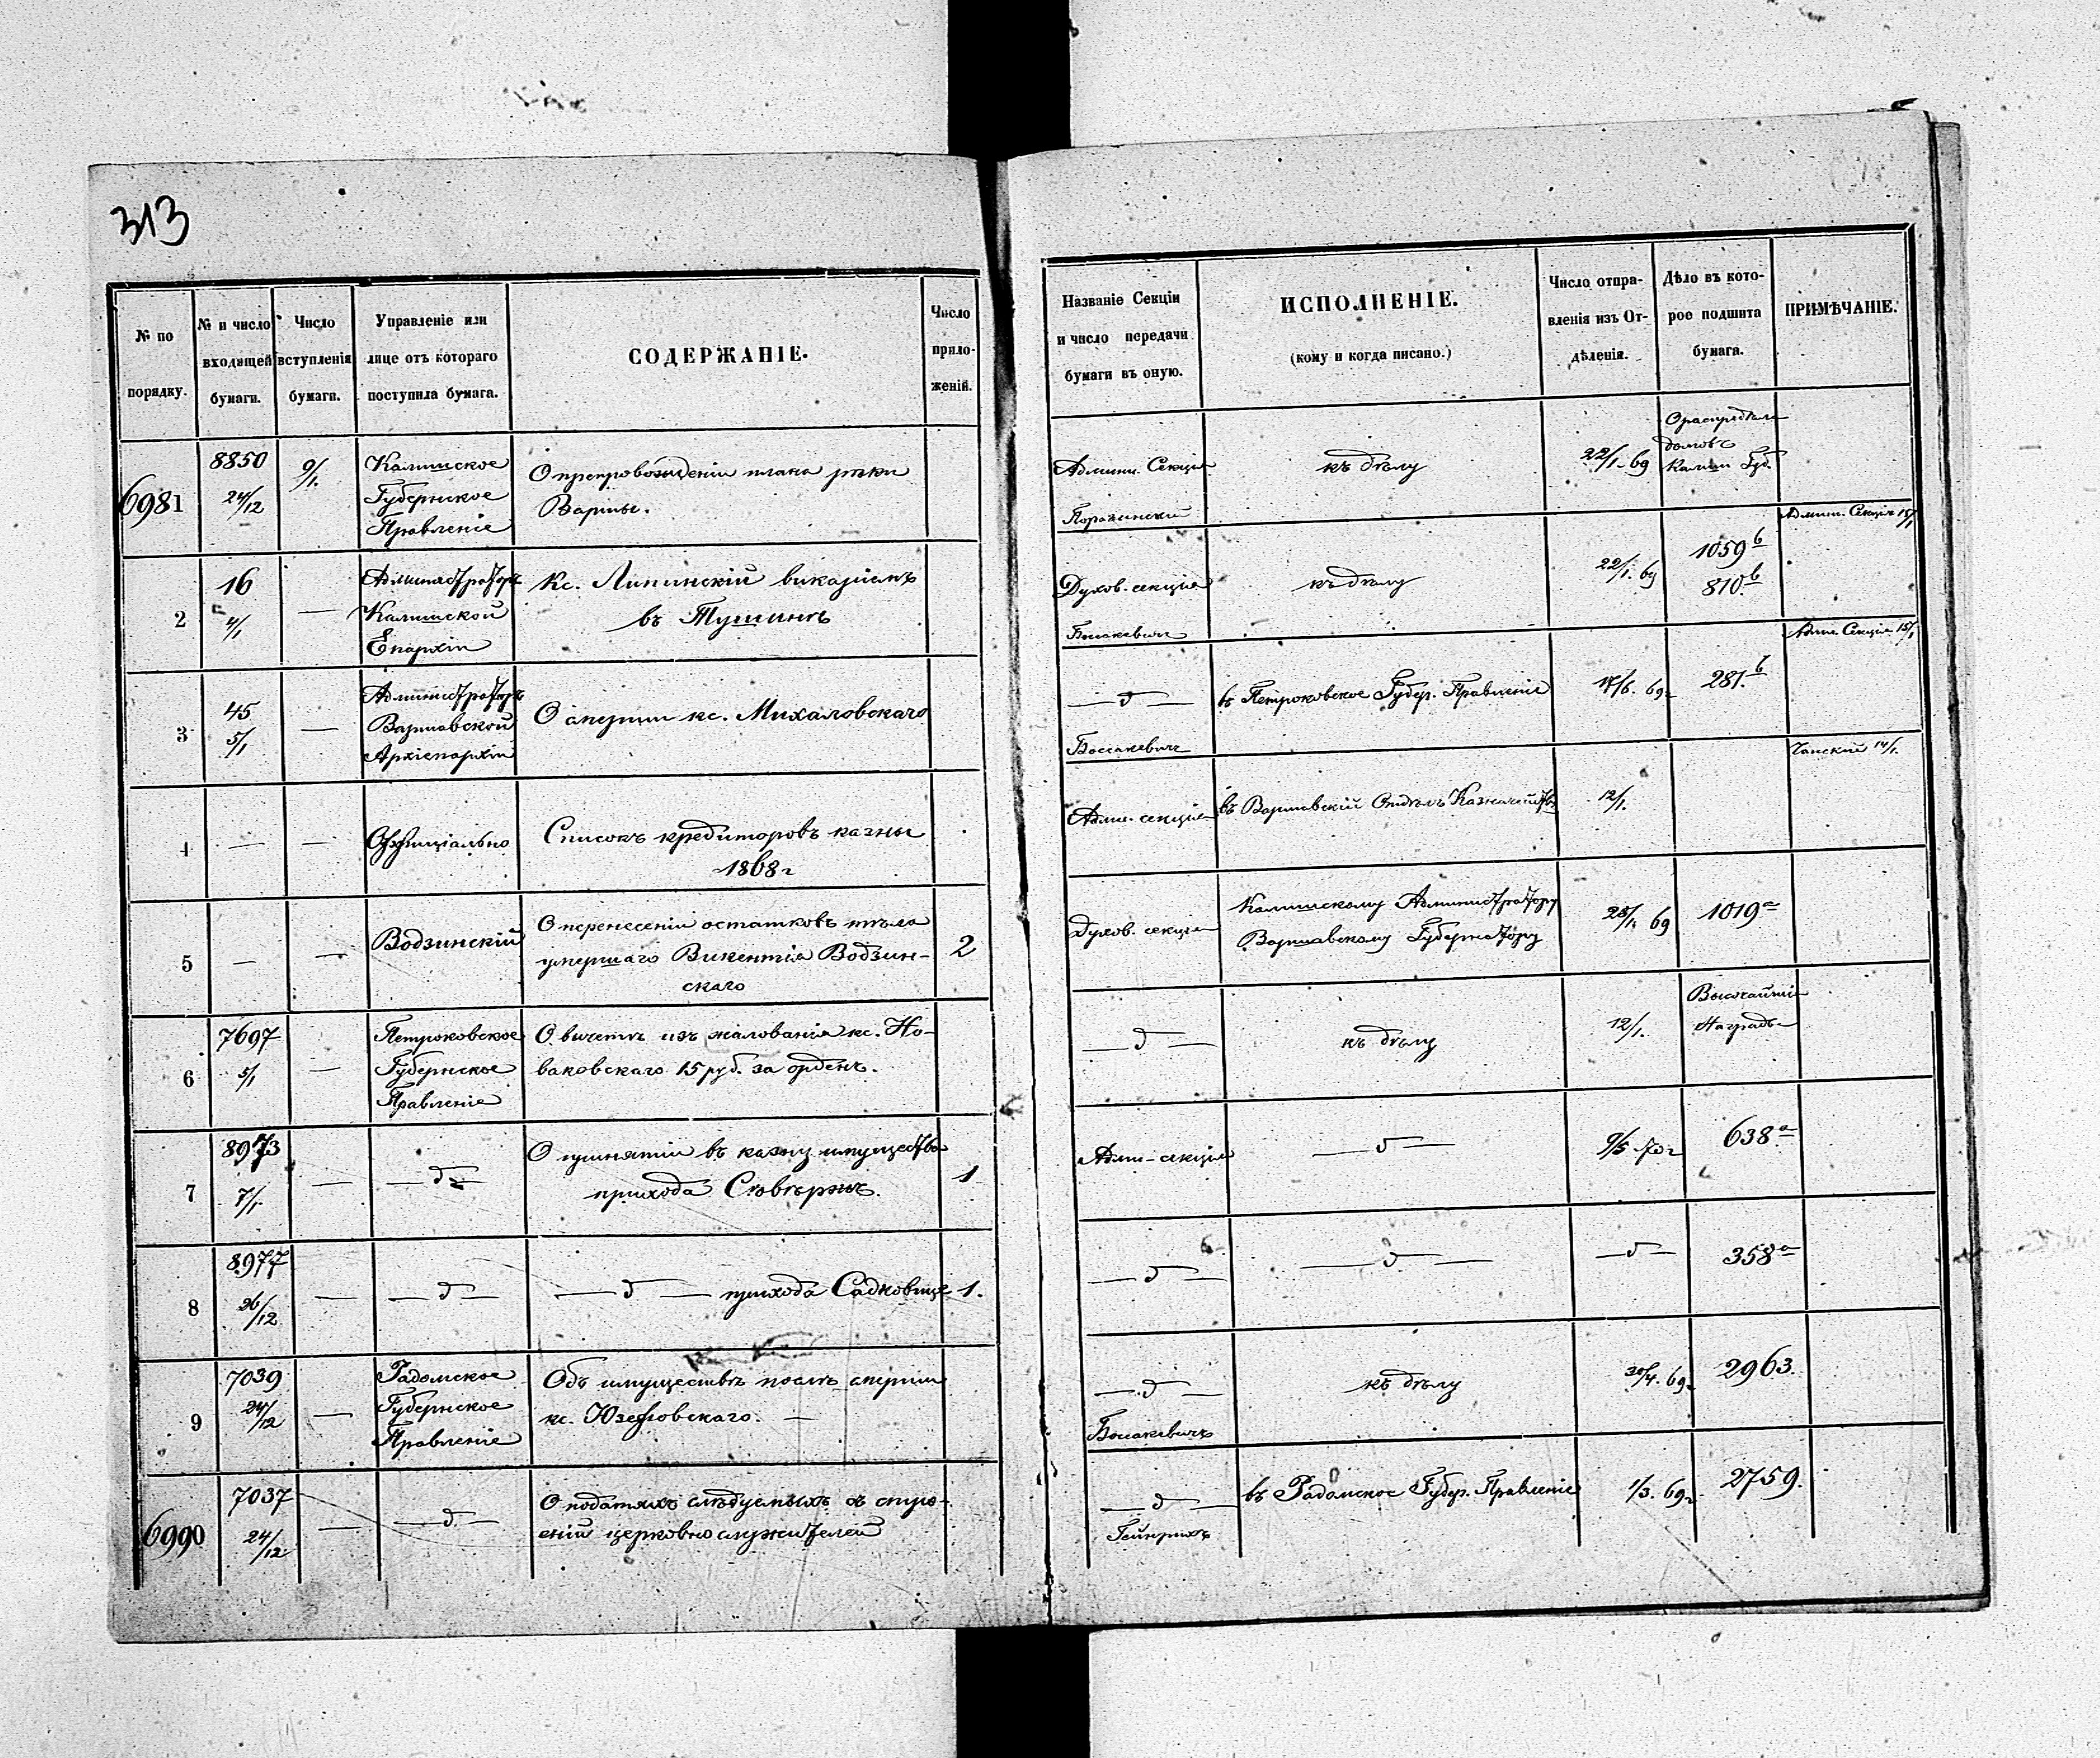 313
№ по порядку.
№ и число входящей бумаги.
Число вступленія бумаги.
Управленіе или лице отъ котораго поступила бумага.
СОДЕРЖАНІЕ.
Число приложеній.
Названіе Секціи и число передачи бумаги въ оную.
ИСПОЛНЕНІЕ.
(кому и когда писано.)
Число отправленія изъ Отдѣленія.
Дѣло въ которое подшита бумага.
ПРИМѢЧАНІЕ.
6981
8850
24/12
9/1.
Калишское
Губернское
Правленіе
О препровожденіи плана рѣки
Варты.
Админ. Секція
къ дѣлу
22/1 69
домовъ
Калиш Губ.
2
16
4/1
—
Администраторъ
Калишской
Епархіи
Кс. Липинскій викаріемъ
въ Тушинѣ
Духов. секція
къ дѣлу
22/1. 69
1059 b
810 b
Админ. Секція 15/1
3
45
5/1
—
Администраторъ
Варшавской
Архіепархіи
О смерти кс. Михаловскаго
— д —
Боссакевичъ
въ Петроковское Губер. Правленіе
69 г
281. b
Адми. Секція 15/1
4
—
—
Оффиціально
Списокъ кредиторовъ казны
1868 г
Адми. секція
въ Варшавскій Отдѣлъ Казначейства
12/1.
14/1.
5
—
—
Водзинскій
О перенесеніи остатковъ тѣла
умершаго Викентія Водзин-
скаго
2
Духов. секція
Калишскому Администратору
Варшавскому Губернатору
69
1019 a
6
7697
5/1
—
Петроковское
Губернское
Правленіе
О вычетѣ изъ жалованія кс. Но-
ваковскаго 15 руб. за орденъ.
— д —
къ дѣлу
12/1.
Высочайшіе
Награды
7
8973
7/1.
—
— д —
О принятіи въ казну имущества
прихода Сѣвѣржъ.
1
Адми - секція
— д —
9/5 70 г
638 a
8
8977
26/12
—
— д —
— д — прихода Садковице
1.
— д —
— д —
— д —
358 a
9
7039
24/12
—
Радомское
Губернское
Правленіе
Объ имуществѣ послѣ смерти
кс. Юзефовскаго. —
— д —
Боссакевичъ
къ дѣлу
30/4. 69 г
2963.
6990
7037
24/12
—
— д —
О податяхъ слѣдуемыхъ съ
церковнослужителей
— д —
Гейнрихъ
въ Радомское Губер. Правленіе
1/3. 69 г
2759.